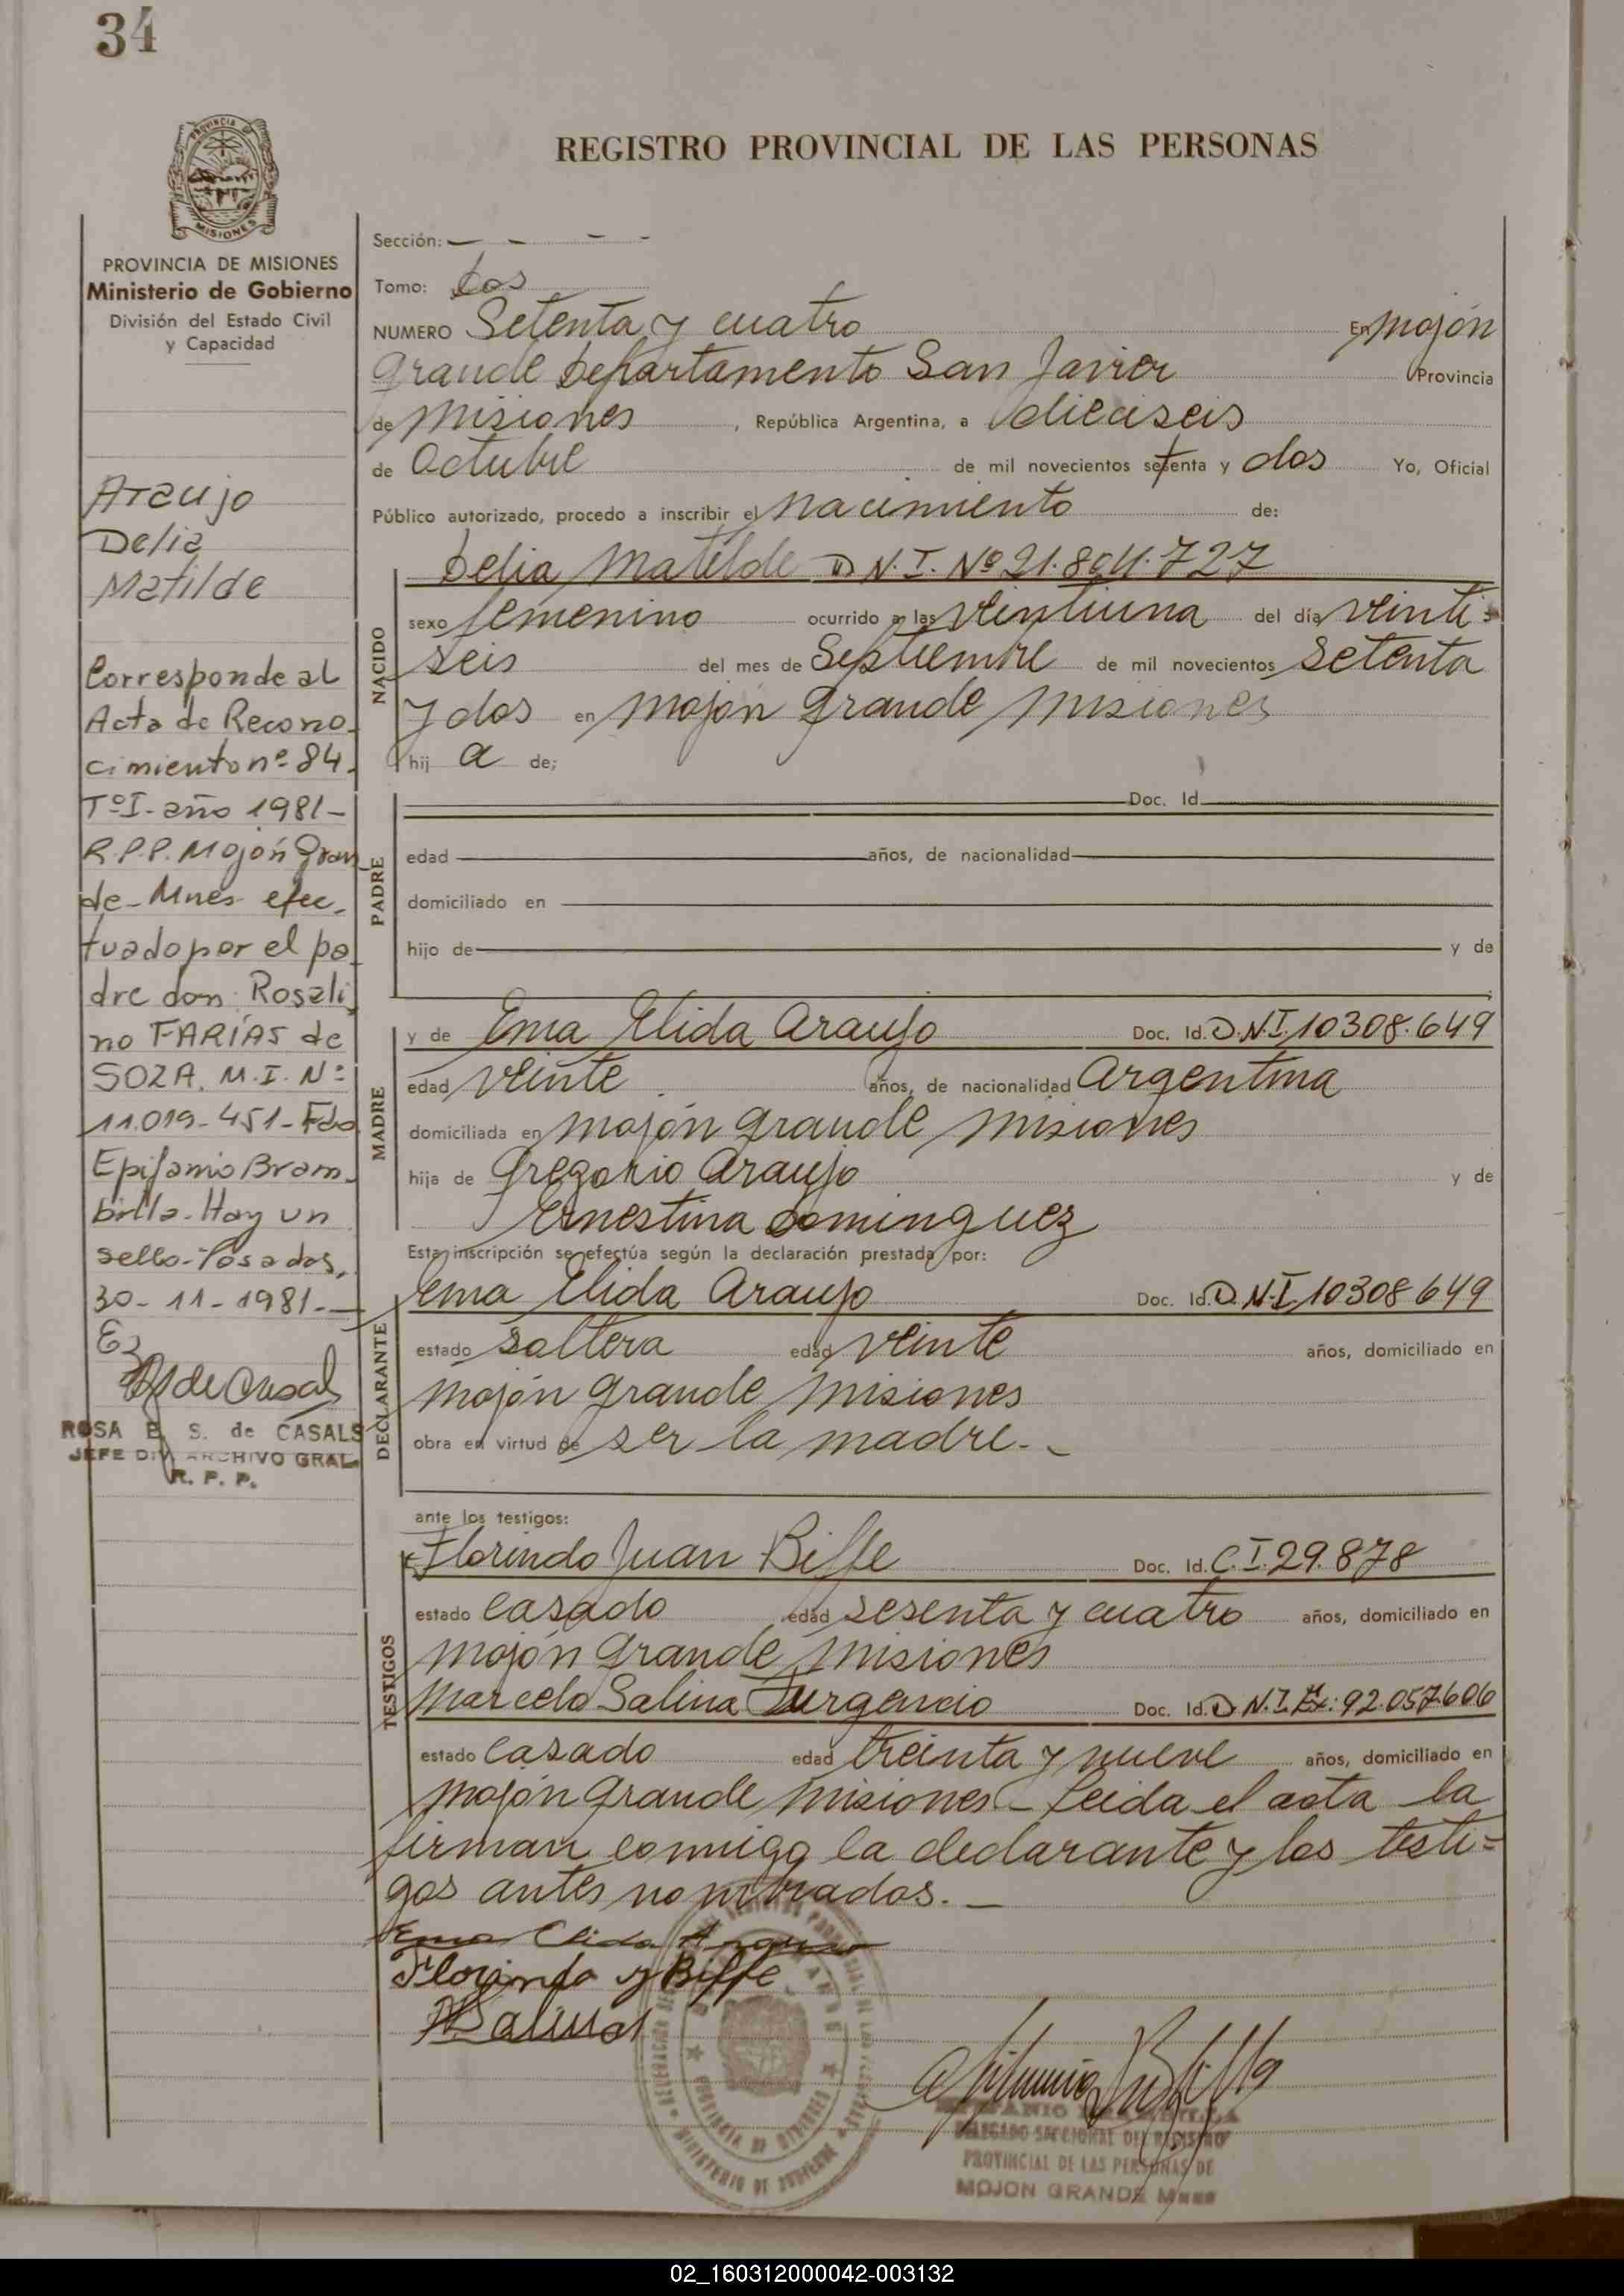 34
REGISTRO PROVINCIAL DE LAS PERSONAS
PROVINCIA DE MISIONES
PROVINCIA DE MISIONES
Ministerio de Gobierno
División del Estado Civil
y Capacidad
Araujo
Delia
Matilde
Corresponde al
Acta de Recono-
cimiento nº 84.
TºI- año 1981-
R.P.P. Mojón Gran
de- Mnes- efec-
tuado por el pa-
dre don Rosali
no FARÍAS de
SOZA. M.I. Nº
11.019-451- Fdo
Epifanio Bram-
billa- Hay un
sello- Posadas,
30-11-1981.-
ROSA E. S. de CASALS
JEFE DIV. ARCHIVO GRAL.
R. P. P.
Sección: - - - -
Tomo: dos
NUMERO Setenta y cuatro En Mojón
Grande Departamento San Javier Provincia
de Misiones, República Argentina, a dieciseis
de Octubre de mil novecientos setenta y dos Yo, Oficial
Público autorizado, procedo a inscribir el Nacimiento de:
NACIDO
Delia Matilde D.N.I. Nº 21.804.727
sexo femenino ocurrido a las veintiuna del día veinti=
seis del mes de Septiembre de mil novecientos Setenta
y dos en Mojón Grande Misiones
hij a de;
PADRE
Doc. Id.
edad años, de nacionalidad
domiciliado en
hijo de y de
MADRE
y de Ema Elida Araujo Doc. Id. D.N.I. 10308.649
edad veinte años, de nacionalidad Argentina
domiciliada en Mojón Grande Misiones
hija de Gregorio Araujo y de
Ernestina Dominguez
Esta inscripción se efectúa según la declaración prestada por:
DECLARANTE
Ema Elida Araujo Doc. Id. D.N.I. 10308.649
estado Soltera edad veinte años, domiciliado en
Mojón Grande Misiones
obra en virtud de ser la madre.-
ante los testigos:
TESTIGOS
Florindo Juan Biffe Doc. Id. C.I. 29.878
estado Casado edad sesenta y cuatro años, domiciliado en
Mojón Grande Misiones
Marcelo Salina Furgencio Doc. Id. D.N.I. Ex: 92.057.606
estado Casado edad treinta y nueve años, domiciliado en
Mojón Grande Misiones- Leida el acta la
firman conmigo la declarante y los testi=
gos antes nombrados.-
Ema Elida Araujo
Florindo J Biffe
Salinas
EPIFANIO BRAMBILLA
DELEGADO SECCIONAL DEL REGISTRO
PROVINCIAL DE LAS PERSONAS DE
MOJON GRANDE Mnes
02_160312000042-003132